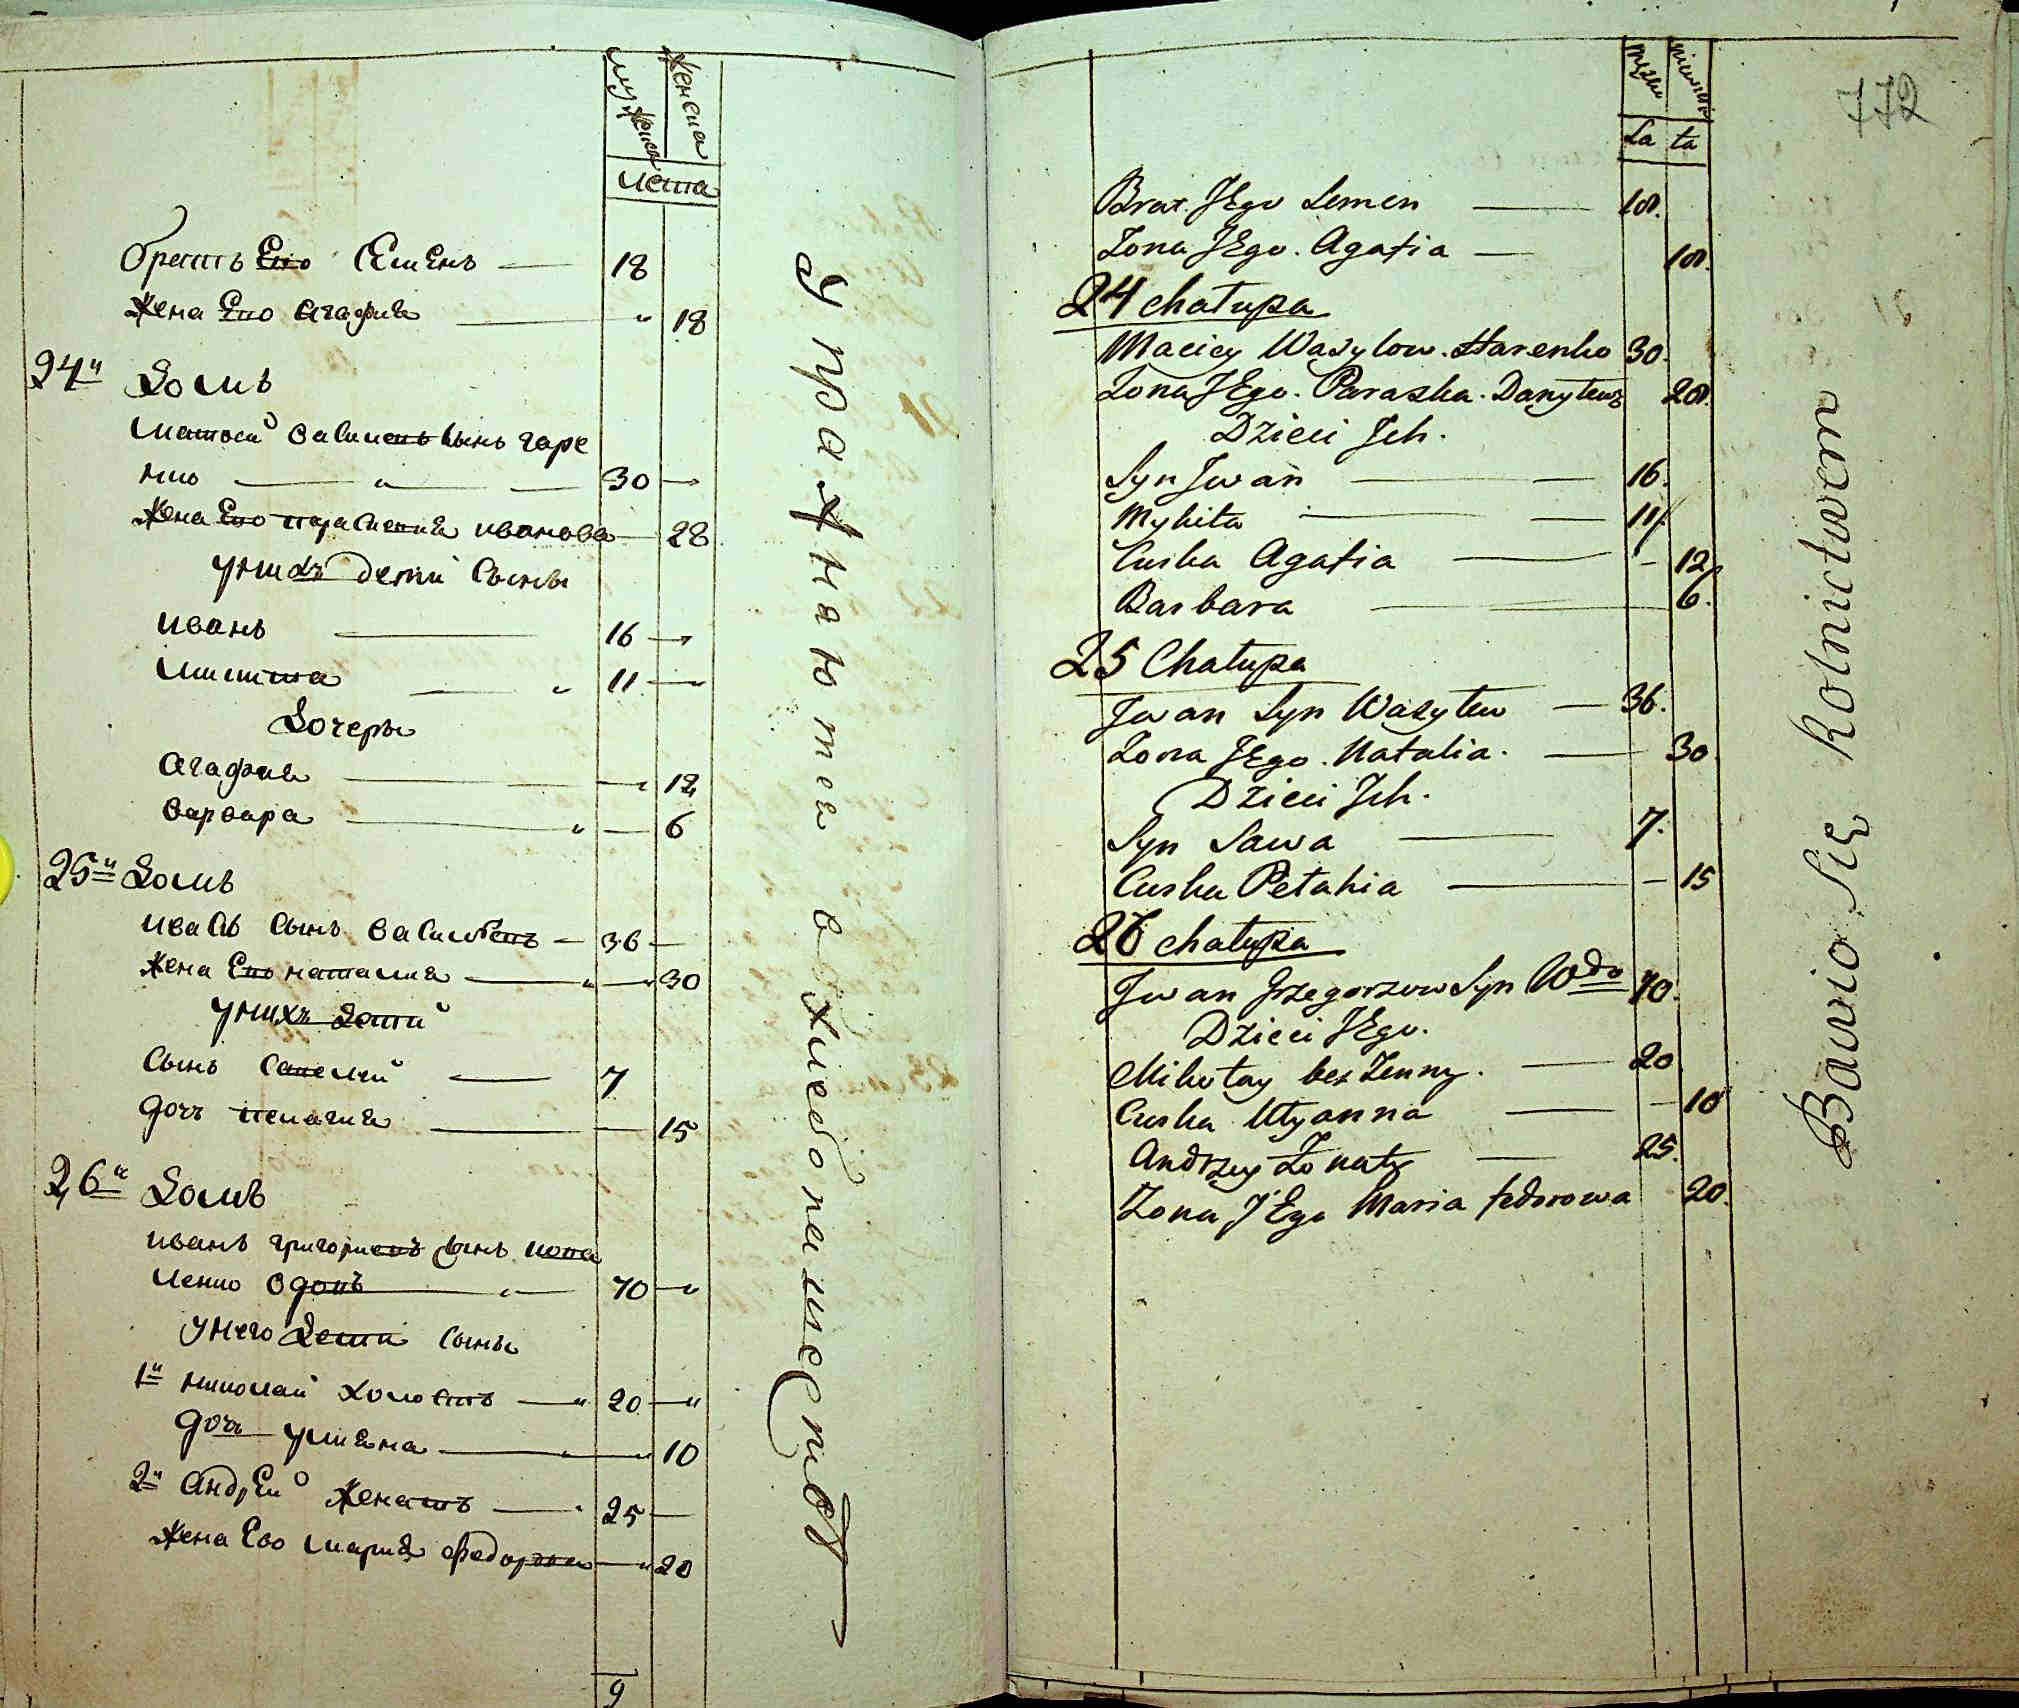 мужеска женска
лета
братъ Его Семенъ — 18
жена Его Агафия — " 18
24й Домъ
Матвей василевъ сынъ гаре
нко — " — 30 —
жена Его параскевия иванова — 28
У нихъ дети Сыны
иванъ — 16 —
Микита — " 11 —
Дочеры
Агафия — 12
варвара — " — 6
25й Домъ
иванъ Сынъ василевъ — 36 —
жена Его наталия — " — 30
У нихъ Дети
Сынъ Савелий — 7
дочь пелагия — 15
26й Домъ
иванъ григориевъ сынъ кова
ленко вдовъ — " — 70 —
У него Дети Сыны
1й николай холостъ — " 20 — "
дочь улияна — 10
2й Андрей женатъ — 25 —
жена Ево мария федорова — " 20
9
Упражнются в хлебопашестве
772
Męzka Niewiast
La ta
Brat JEgo Semen — 18.
Zona JEgo. Agafia — 18.
24 chałupa
Maciey Wasylow. Harenko 30.
Zona JEgo. Paraska. Danylewa 28.
Dzieci Jch.
Syn Jwan — 16.
Mykita — 11
Curka Agafia — 12
Barbara — 6.
25 Chałupa
Jwan Syn Wasylew — 36.
Zona JEgo. Natalia. — 30
Dzieci Jch.
Syn Sawa — 7.
Curka Petahia — 15
26 chałupa
Jwan Grzegorzow Syn Wdo 70.
Dzieci JEgo.
Mikołay bez Zenny. — 20
Curka Ulyanna — 10
Andrzey Zonaty — 25.
Zona JEgo Maria fedorowa 20.
Bawio się Rolnictwem